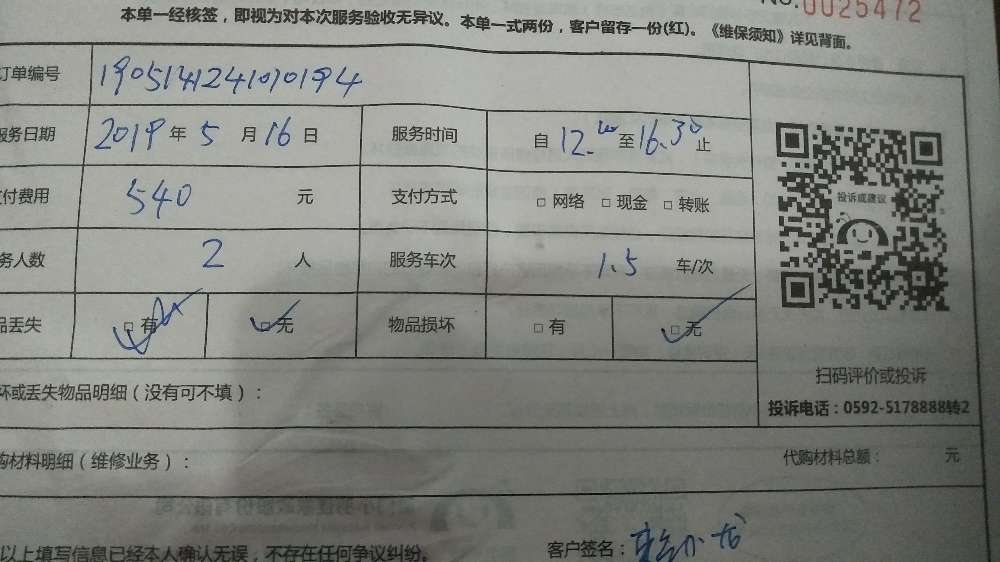 NO.0025472
本单一经核签，即视为对本次服务验收无异议。本单一式两份，客户留存一份(红)。《维保须知》详见背面。
订单编号 1905141241010194
服务日期 2019 年 5 月 16 日 服务时间 自 12.00 至 16.30 止
付费用 540 元 支付方式 □ 网络 □ 现金 □ 转账
务人数 2 人 服务车次 1.5 车/次
品丢失 □ 有 □ 无 物品损坏 □ 有 □ 无
投诉或建议
扫码评价或投诉
投诉电话：0592-5178888转2
坏或丢失物品明细（没有可不填）：
购材料明细（维修业务）： 代购材料总额： 元
以上填写信息已经本人确认无误，不存在任何争议纠纷。 客户签名：